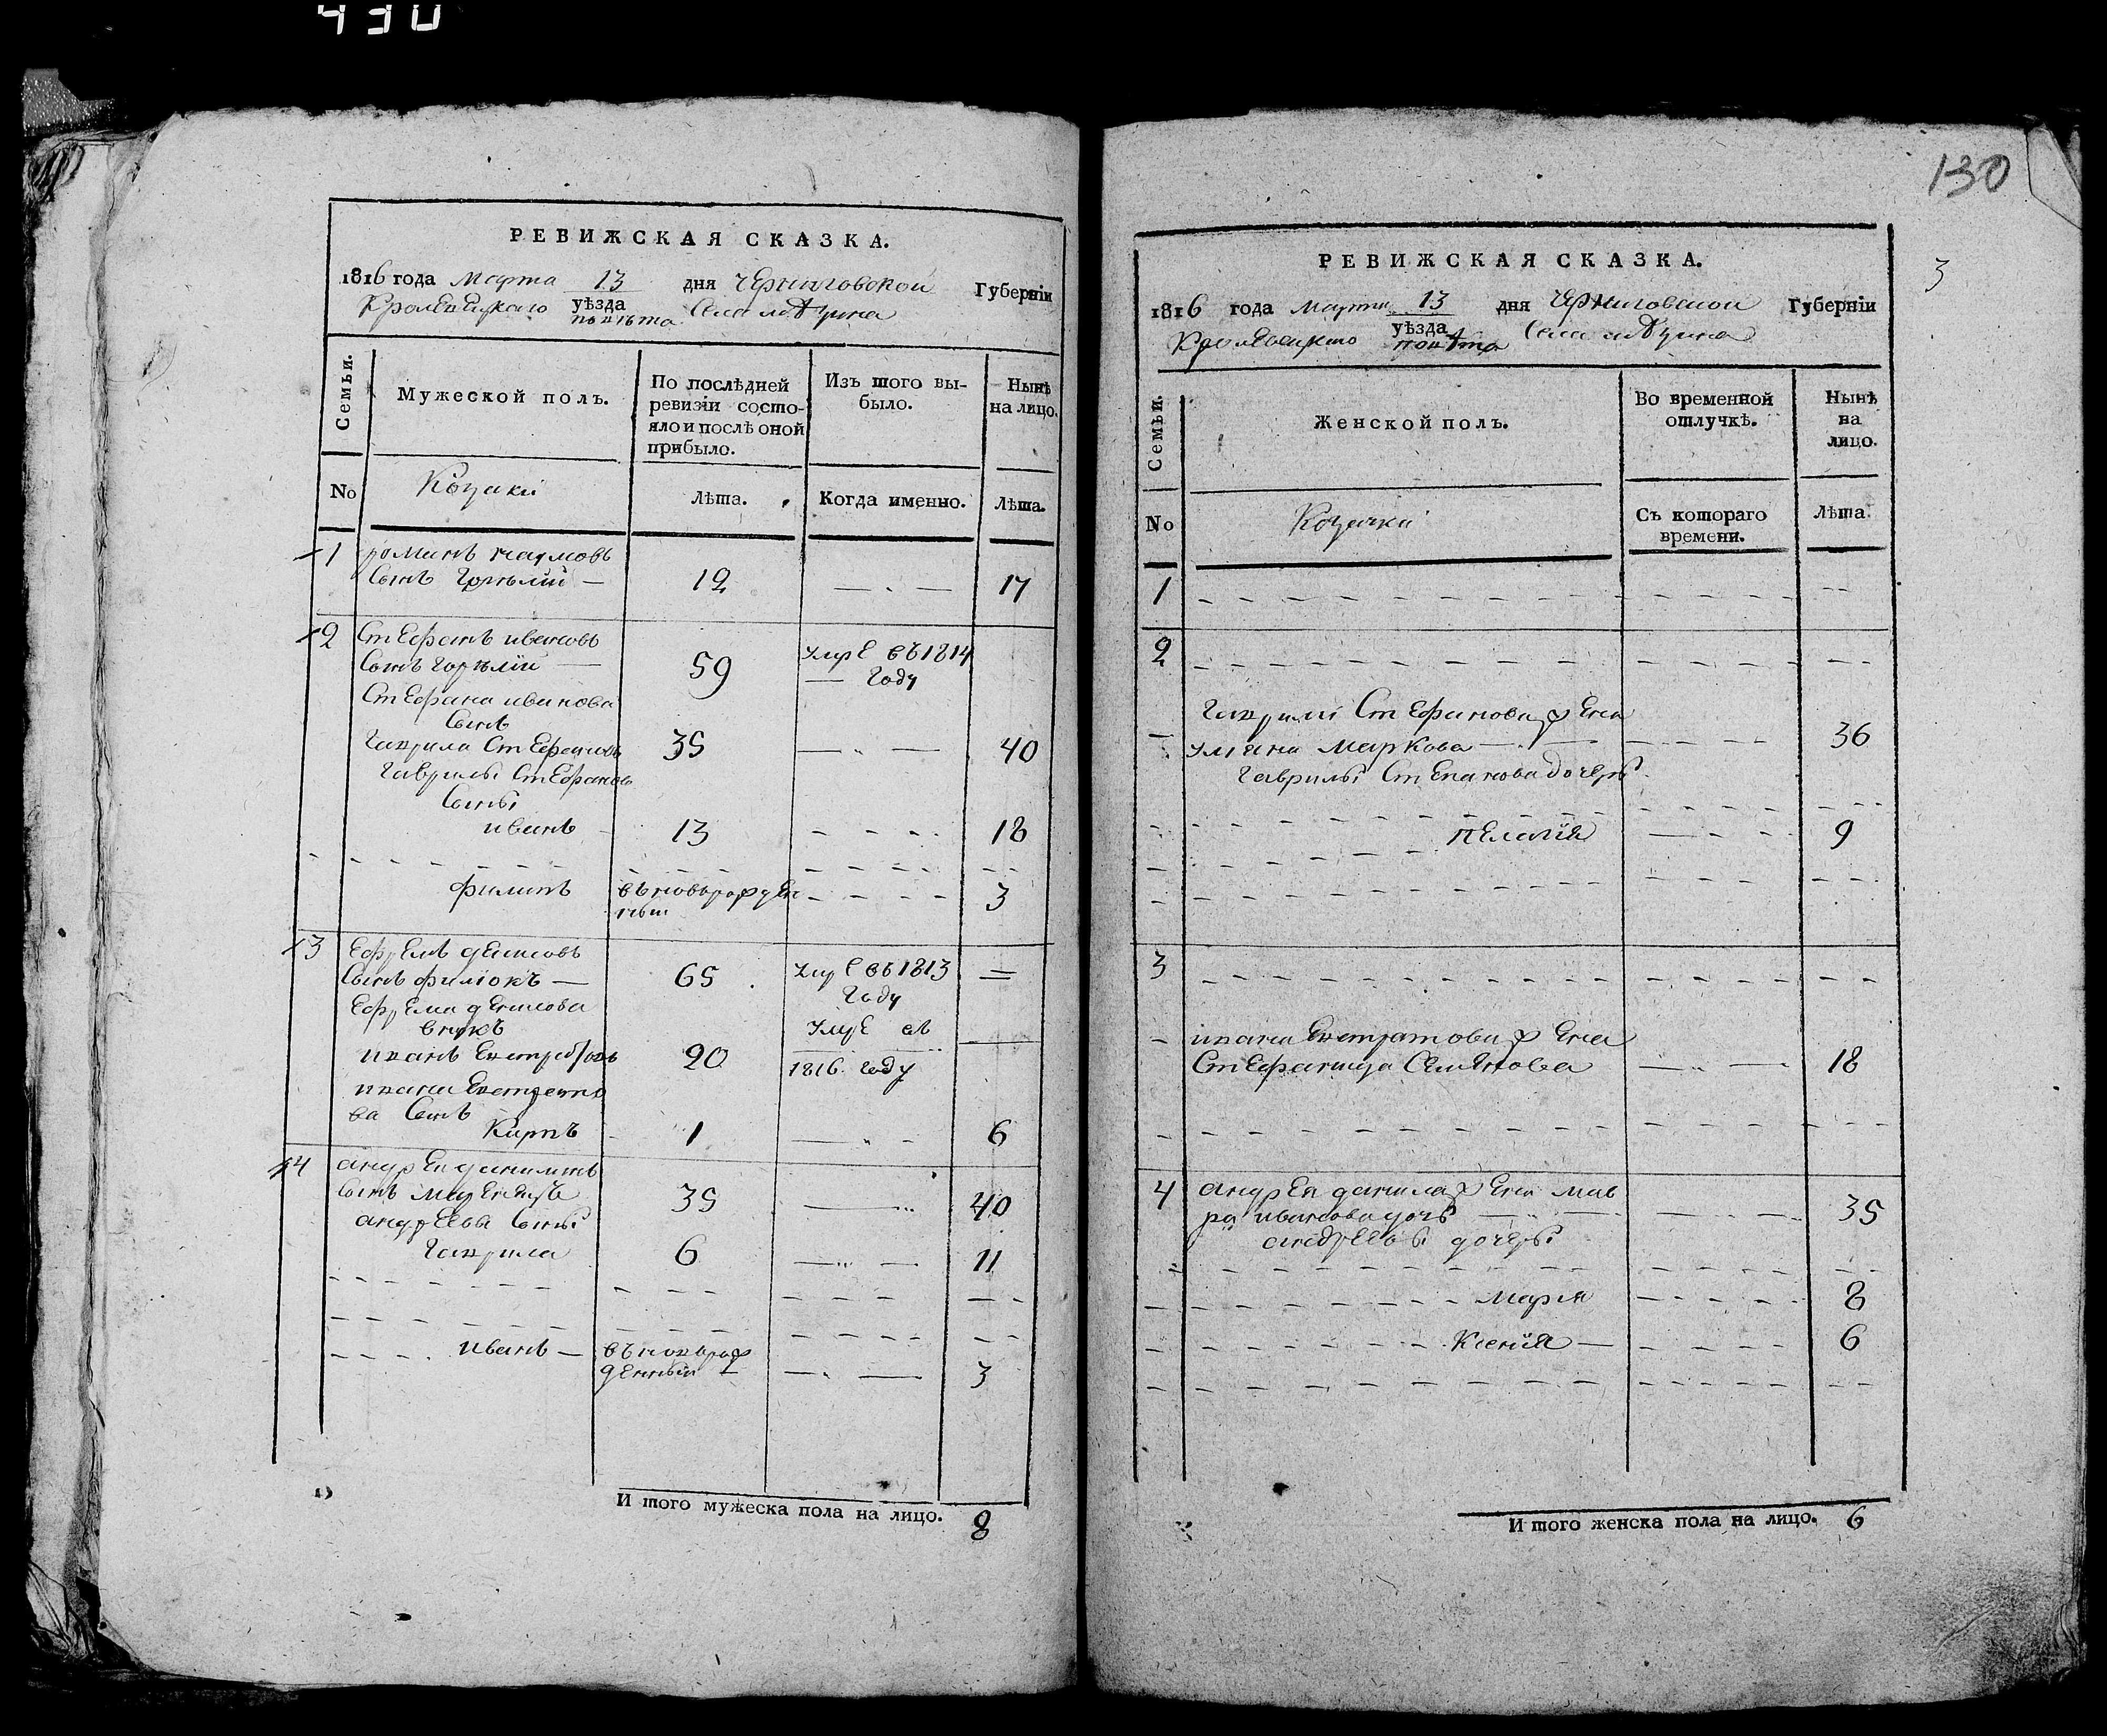 430
РЕВИЖСКАЯ СКАЗКА.
1816 года марта 13 дня черниговской Губерніи
Кролевецкаго уѣзда
повѣта Села
Семьи.
Мужеской полъ.
По послѣдней
ревизіи состо-
яло и послѣ оной
прибыло.
Изъ того вы-
было.
Нынѣ
на лицо.
No
Козаки
Лѣта.
Когда именно.
Лѣта.
1 романъ наумовъ
сынъ 12 17
2 Стефанъ ивановъ
сынъ 59 умре въ 1814
году
Стефана иванова
сынъ
гаврила Стефановъ 35 40
гаврилы Стефанова
сыны
иванъ 13 18
филипъ въновьрожден
ный 3
3 Ефремъ денисовъ
сынъ филюкъ 65 умре въ 1813
году
Ефрема денисова
внукъ умре въ
иванъ 20 1816 году
ивана
ва сынъ
Карпъ 1 6
4 андрей даниловъ
сынъ 35 40
андреевы сыны
гаврила 6 11
иванъ въноврож
денный 3
И того мужеска пола на лицо. 8
130
3
РЕВИЖСКАЯ СКАЗКА.
1816 года марта 13 дня черниговской Губерніи
Кролевецкаго уѣзда
повѣта Села
Семьи.
Женской полъ.
Во временной
отлучкѣ.
Нынѣ
на
лицо.
No
Козачки
Съ котораго
времени.
Лѣта.
1
2
гаврилы Стефанова жена
улияна Маркова 36
гаврилы Степанова дочерь
пелагія 9
3
ивана жена
Стефанида Семенова 18
4 андрея данилова жена мав
ра иванова дочь 35
андреевы дочеры
марія 8
Ксенія 6
И того женска пола на лицо. 6